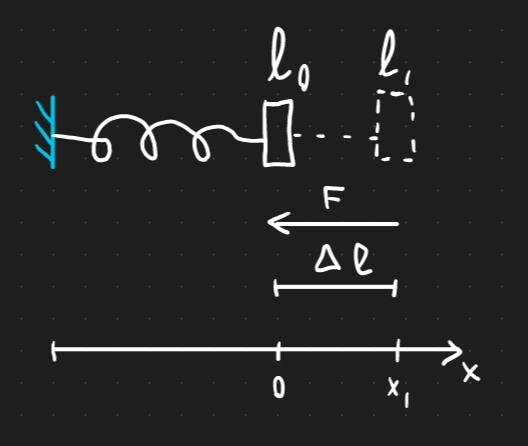 l₀ l₁
F
Δl
x
0 x₁